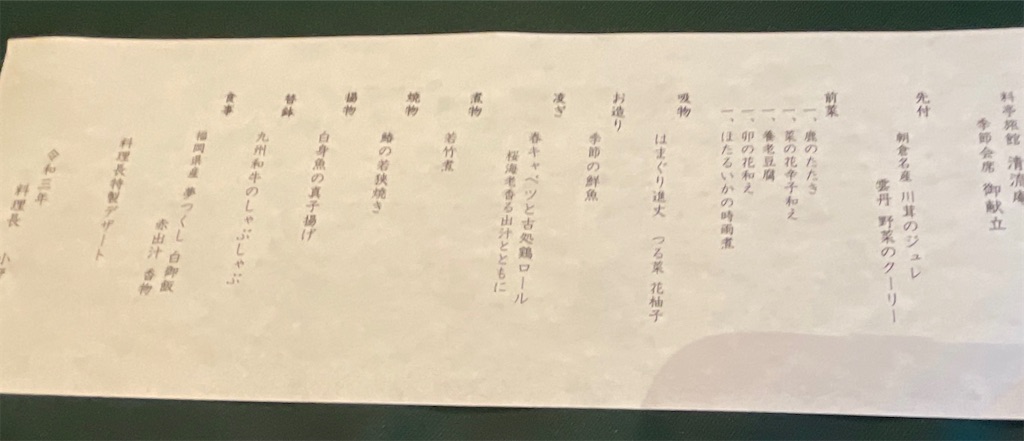 料亭旅館 清流庵
季節会席 御献立
先付
朝倉名産 川茸のジュレ
雲丹 野菜のクーリー
前菜
一、鹿のたたき
一、菜の花辛子和え
一、養老豆腐
一、卯の花和え
一、ほたるいかの時雨煮
吸物
はまぐり進丈 つる菜 花柚子
お造り
季節の鮮魚
凌ぎ
春キャベツと古処鶏ロール
桜海老香る出汁とともに
煮物
若竹煮
焼物
鰆の若狭焼き
揚物
白身魚の真子揚げ
替鉢
九州和牛のしゃぶしゃぶ
食事
福岡県産 夢つくし 白御飯
赤出汁 香物
料理長特製デザート
令和三年
料理長 小野